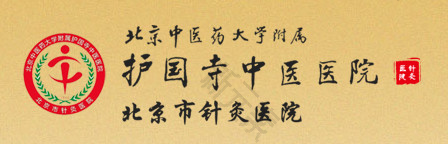 北京中医药大学附属护国寺中医医院
北京市针灸医院
北京中医药大学附属
护国寺中医医院
北京市针灸医院